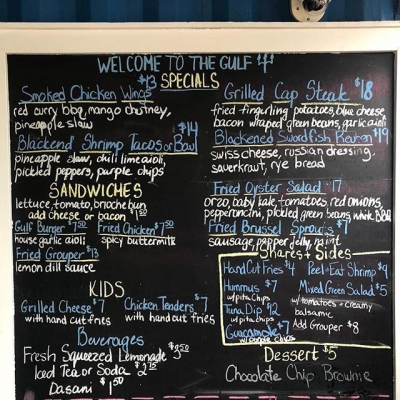 WELCOME TO THE GULF
SPECIALS
Smoked Chicken Wings $13
red curry bbq, mango chutney,
pineapple slaw
Blackend Shrimp Tacos or Bowl $14
pineapple slaw, chili lime aioli,
pickled peppers, purple chips
SANDWICHES
lettuce, tomato, brioche bun
add cheese or bacon $1.50
Gulf Burger $7.50 Fried Chicken $7.50
house garlic aioli spicy buttermilk
Fried Grouper $13
lemon dill sauce
KIDS
Grilled Cheese $7 Chicken Tenders $7
with hand cut fries with hand cut fries
Beverages
Fresh Squeezed Lemonade $3.50
Iced Tea or Soda $2.75
Dasani $1.50
Grilled Cap Steak $18
fried fingerling potatoes, blue cheese
bacon wraped green beans, garlic aioli
Blackened Swordfish Reuben $19
swiss cheese, russian dressing,
saverkraut, rye bread
Fried Oyster Salad 17
orzo, baby kale, tomatoes, red onions,
pepperoncini, pickled green beans, white BBQ
Fried Brussel Sprouts $7
sausage, pepper jelly, mint
Shares + Sides
Hand Cut Fries $4 Peel + Eat Shrimp $9
Hummus $7 Mixed Green Salad $5
w/pita chips w/ tomatoes + creamy
Tuna Dip $12 balsamic
w/pita chips Add Grouper $8
Guacamole $7
w/purple chips
Dessert $5
Chocolate Chip Brownie